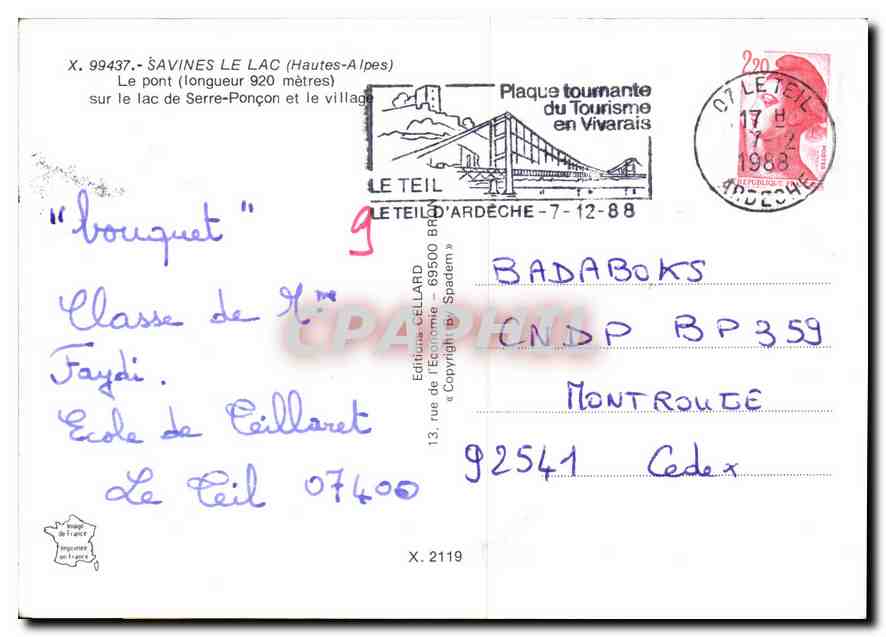 X. 99437.- SAVINES LE LAC (Hautes-Alpes)
Le pont (longueur 920 mètres)
sur le lac de Serre-Ponçon et le village
Plaque tournante
du Tourisme
en Vivarais
LE TEIL
LE TEIL D'ARDÈCHE -7-12-88
2,20
07 LE TEIL
17 H
7 - 2
1988
ARDECHE
POSTES
"bouquet"
9
Classe de Mme
Faydi.
Ecole de Teillaret
Le Teil 07400
Editions CELLARD
13, rue de l'Economie - 69500 BRON
« Copyright By Spadem »
CPAPHIL
BADABOKS
CNDP BP 359
MONTROUGE
92541 Cedex
Image
de France
Imprimée
en France
X. 2119